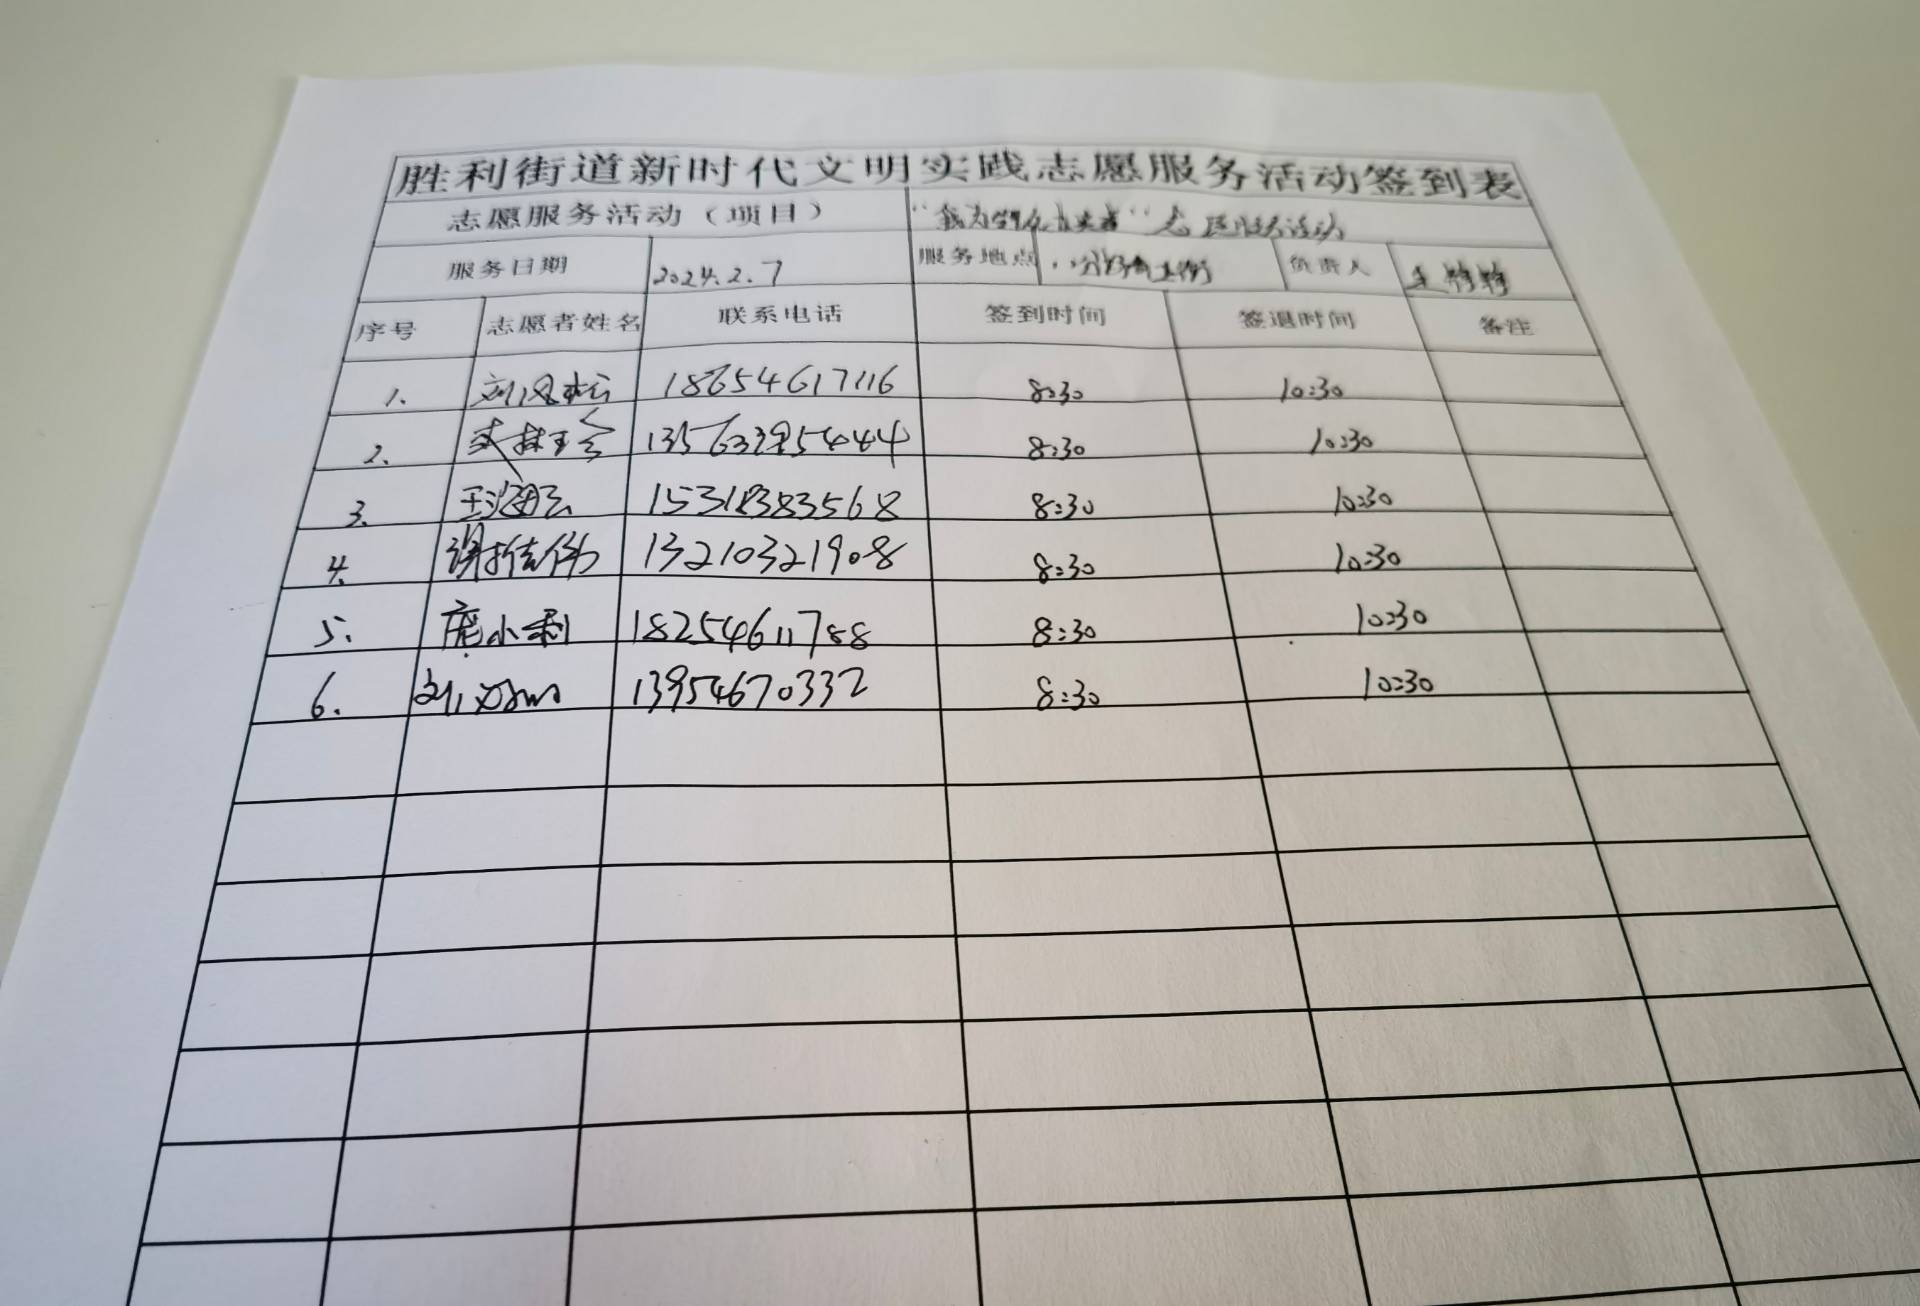 胜利街道新时代文明实践志愿服务活动签到表
志愿服务活动（项目） “我为群众办实事”志愿服务活动
服务日期 2024.2.7 服务地点 负责人
序号 志愿者姓名 联系电话 签到时间 签退时间 备注
1. 18654617116 8:30 10:30
2. 13563395444 8:30 10:30
3. 王海云 15318383568 8:30 10:30
4. 13210321908 8:30 10:30
5. 庞小利 18254611788 8:30 10:30
6. 13954670332 8:30 10:30